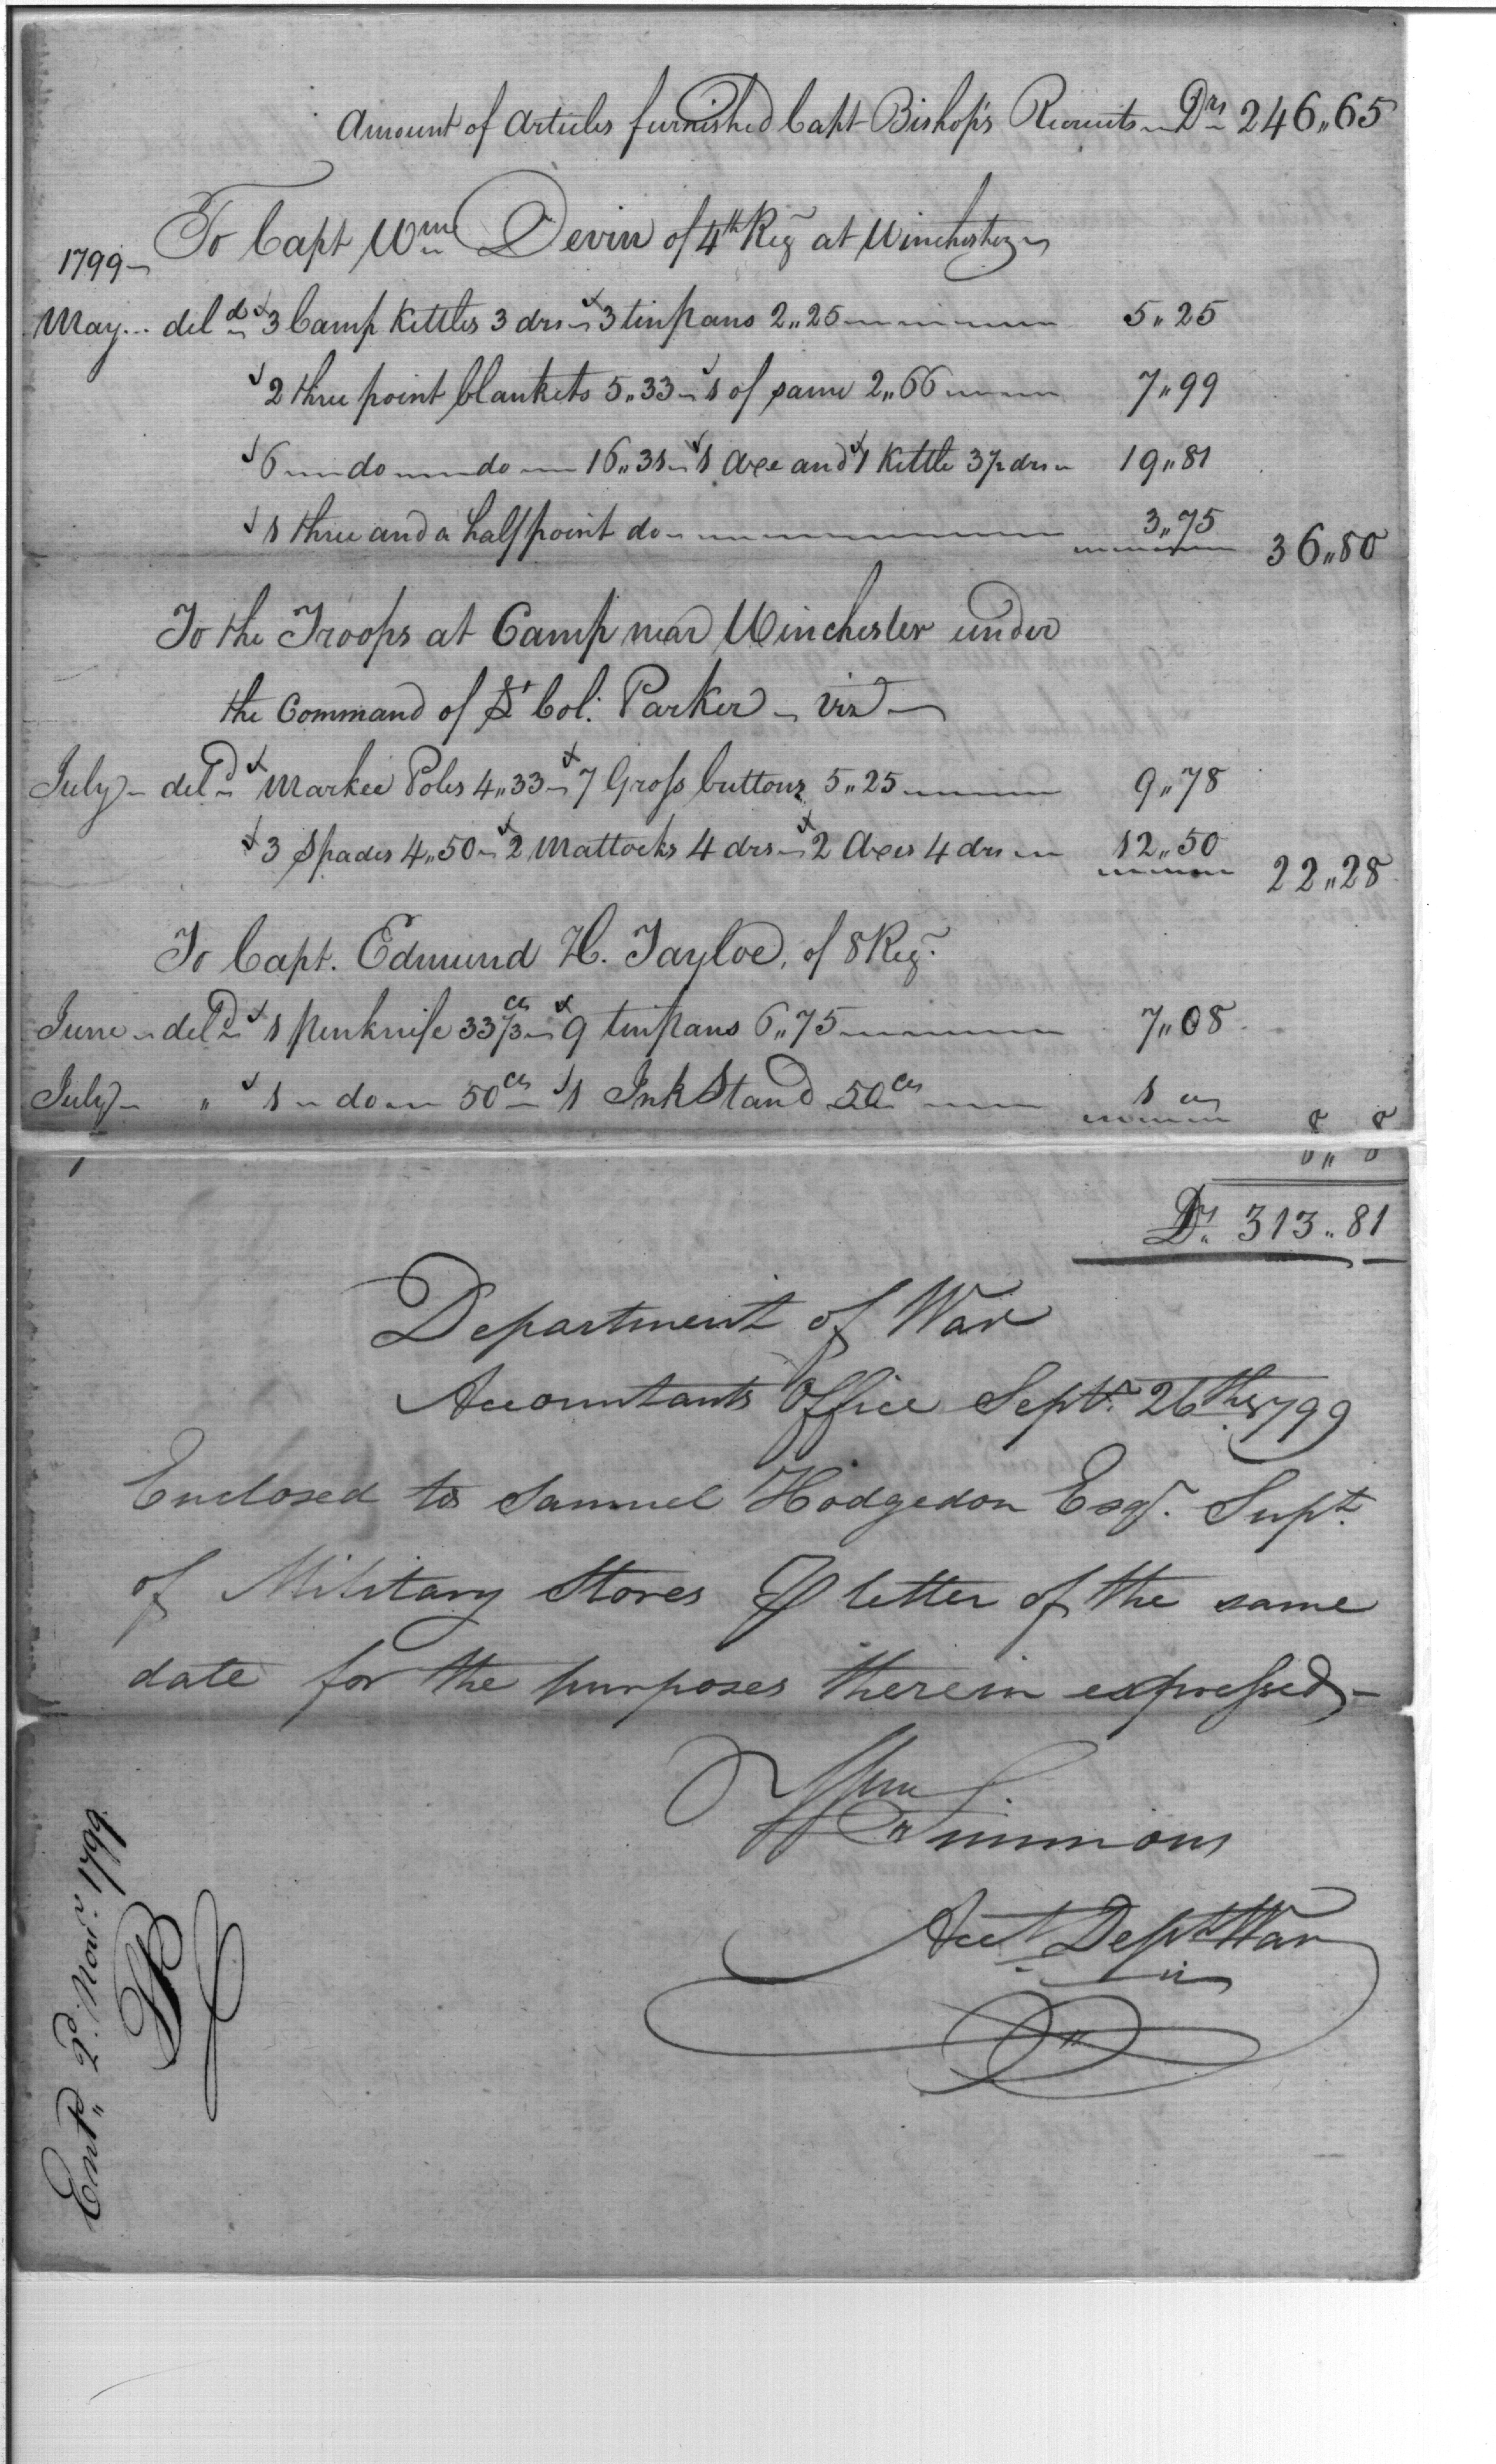 Amount of Articles furnished Capt Bishop's Recruits Drs 246,,65
1799
To Capt Wm Devin of 4th Reg at Winchester
May... deld 3 Camp Kettles 3 drs 3 tinpans 2,,25 5,,25
2 three point blankets 5,,33 1 of same 2,,66 7,,99
6 do do 16,,31 1 Axe and 1 Kettle 3½ drs 19,,81
1 three and a half point do 3,,75 36,,80
To the Troops at Camp near Winchester under
the Command of Lt Col. Parker viz
July deld Markee Poles 4,,33 7 Gross buttons 5,,25 9,,78
3 Spades 4,,50 2 Mattocks 4 drs 2 Axes 4 drs 12,,50 22,,28
To Capt. Edmund H. Tayloe, of 8 Reg.
June deld 1 penknife 33⅓ cts 9 tinpans 6,,75 7,,08
July " 1 do 50 cts 1 Ink Stand 50 cts 1 8,, 8
Drs. 313,,81
Department of War
Accountants Office Septr. 26th 1799
Enclosed to Samuel Hodgdon Esqr. Supt.
of Military Stores ⅌ letter of the same
date for the purposes therein expressed
Wm Simmons
Acct. Dept War
Entd,, 2d. Novr. 1799